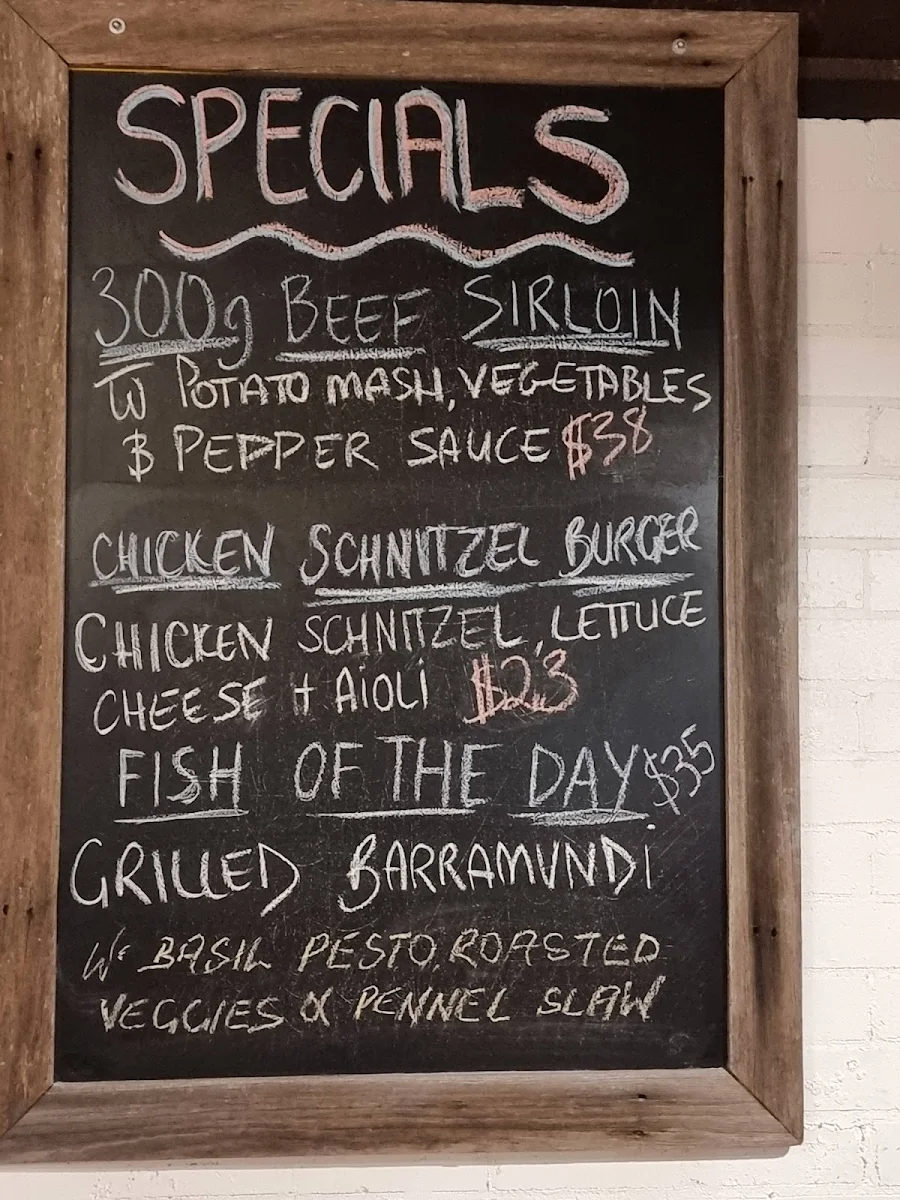 SPECIALS
300g BEEF SIRLOIN
W POTATO MASH, VEGETABLES
& PEPPER SAUCE $38
CHICKEN SCHNITZEL BURGER
CHICKEN SCHNITZEL, LETTUCE
CHEESE + AiOLi $23
FISH OF THE DAY $35
GRILLED BARRAMUNDi
W: BASIL PESTO, ROASTED
VEGGIES & PENNEL SLAW